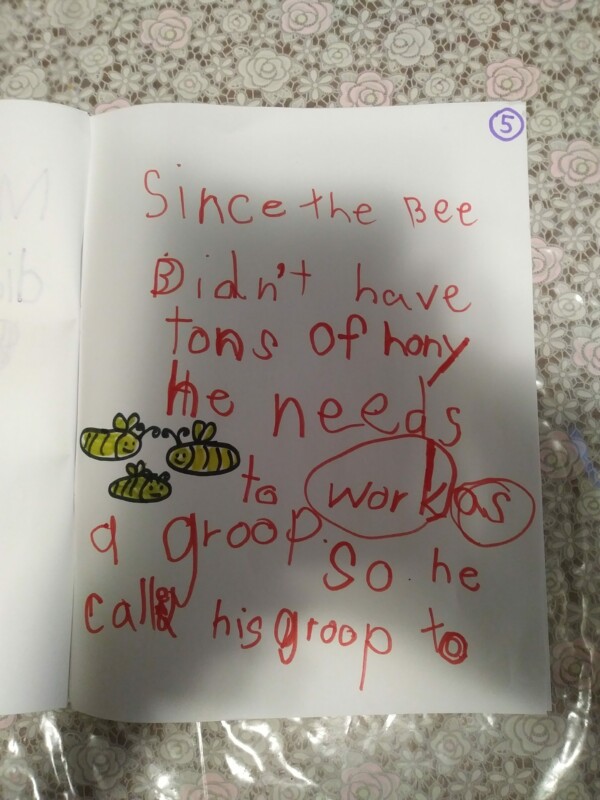 5
Since the Bee
Didn't have
tons of hony
He needs
to work as
a groop.
So he
calld his groop to